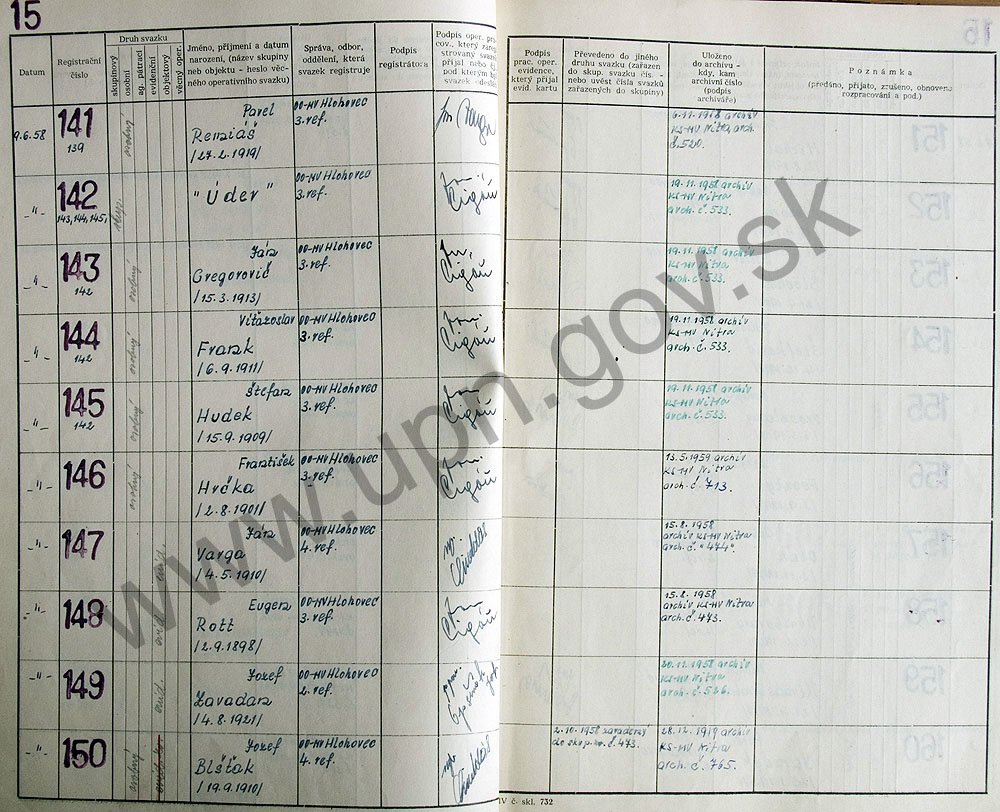 15
Datum
Registrační číslo
Druh svazku
skupinový
osobní
ag. pátrací
evidenční
objektový
věcný oper.
Jméno, příjmení a datum
narození, (název skupiny
neb objektu - heslo věc-
ného operativního svazku)
Správa, odbor,
oddělení, která
svazek registruje
Podpis
registrátora
Podpis oper. prac
cov., který zareg
strovaný svazek
přijal nebo
pod kterým
svazek
Podpis
prac. oper.
evidence,
který přijal
evid. kartu
Převedeno do jiného
druhu svazku (zařazen
do skup. svazku čís. -
nebo uvést čísla svazků
zařazených do skupiny)
Uloženo
do archivu -
kdy, kam
archivní číslo
(podpis
archiváře)
Poznámka
(předáno, přijato, zrušeno, obnoveno
rozpracování a pod.)
9.6.58
141
139
osobný
Pavel
Remiáš
/27.2.1919/
OO-MV Hlohovec
3. ref.
archív
KS-MV Nitra, arch.
č. 520.
-"-
142
143, 144, 145,
skup.
"Úder"
OO-MV Hlohovec
3. ref.
Cigáň
19.11.1958 archív
KS-MV Nitra
arch. č. 533.
-"-
143
142
osobný
Ján
Gregorovič
/15.3.1913/
OO-MV Hlohovec
3. ref.
Cigáň
19.11.1958 archív
KS-MV Nitra
arch. č. 533.
-"-
144
142
osobný
Víťazoslav
Frank
/6.9.1911/
OO-MV Hlohovec
3. ref.
Cigáň
19.11.1958 archív
KS-MV Nitra
arch. č. 533.
-"-
145
142
osobný
Štefan
Hudek
/15.9.1909/
OO-MV Hlohovec
3. ref.
Cigáň
19.11.1958 archív
KS-MV Nitra
arch. č. 533.
-"-
146
osobný
František
Hrčka
/2.8.1901/
OO-MV Hlohovec
3. ref.
Cigáň
13.5.1959 archív
KS-MV Nitra
arch. č. 713.
-"-
147
evid.
Ján
Varga
/4.5.1910/
OO-MV Hlohovec
4. ref.
15.8.1958
archív KS-MV Nitra
arch. č. "474".
-"-
148
evid.
Eugen
Rott
/2.9.1898/
OO-MV Hlohovec
3. ref.
Cigáň
15.8.1958
archív KS-MV Nitra
arch. č. 473.
-"-
149
evid.
Jozef
Zavadan
/4.8.1921/
OO-MV Hlohovec
2. ref.
20.11.1958 archív
KS-MV Nitra
arch. č. 536.
-"-
150
osobný
Jozef
Blšťak
/19.9.1910/
OO-MV Hlohovec
4. ref.
2.10.1958 zaradený
do skup. č. 473.
KS-MV Nitra
arch. č. 765.
IV č. skl. 732
www.upn.gov.sk